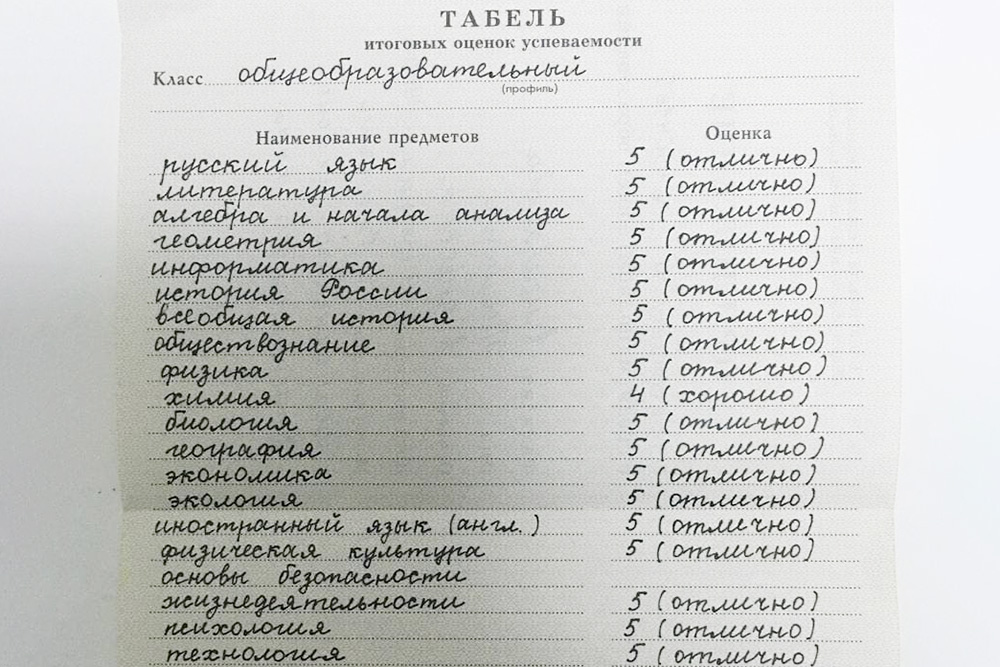 ТАБЕЛЬ
итоговых оценок успеваемости
Класс общеобразовательный
(профиль)
Наименование предметов Оценка
русский язык 5 (отлично)
литература 5 (отлично)
алгебра и начала анализа 5 (отлично)
геометрия 5 (отлично)
информатика 5 (отлично)
история России 5 (отлично)
всеобщая история 5 (отлично)
обществознание 5 (отлично)
физика 5 (отлично)
химия 4 (хорошо)
биология 5 (отлично)
география 5 (отлично)
экономика 5 (отлично)
экология 5 (отлично)
иностранный язык (англ.) 5 (отлично)
физическая культура 5 (отлично)
основы безопасности
жизнедеятельности 5 (отлично)
психология 5 (отлично)
технология 5 (отлично)